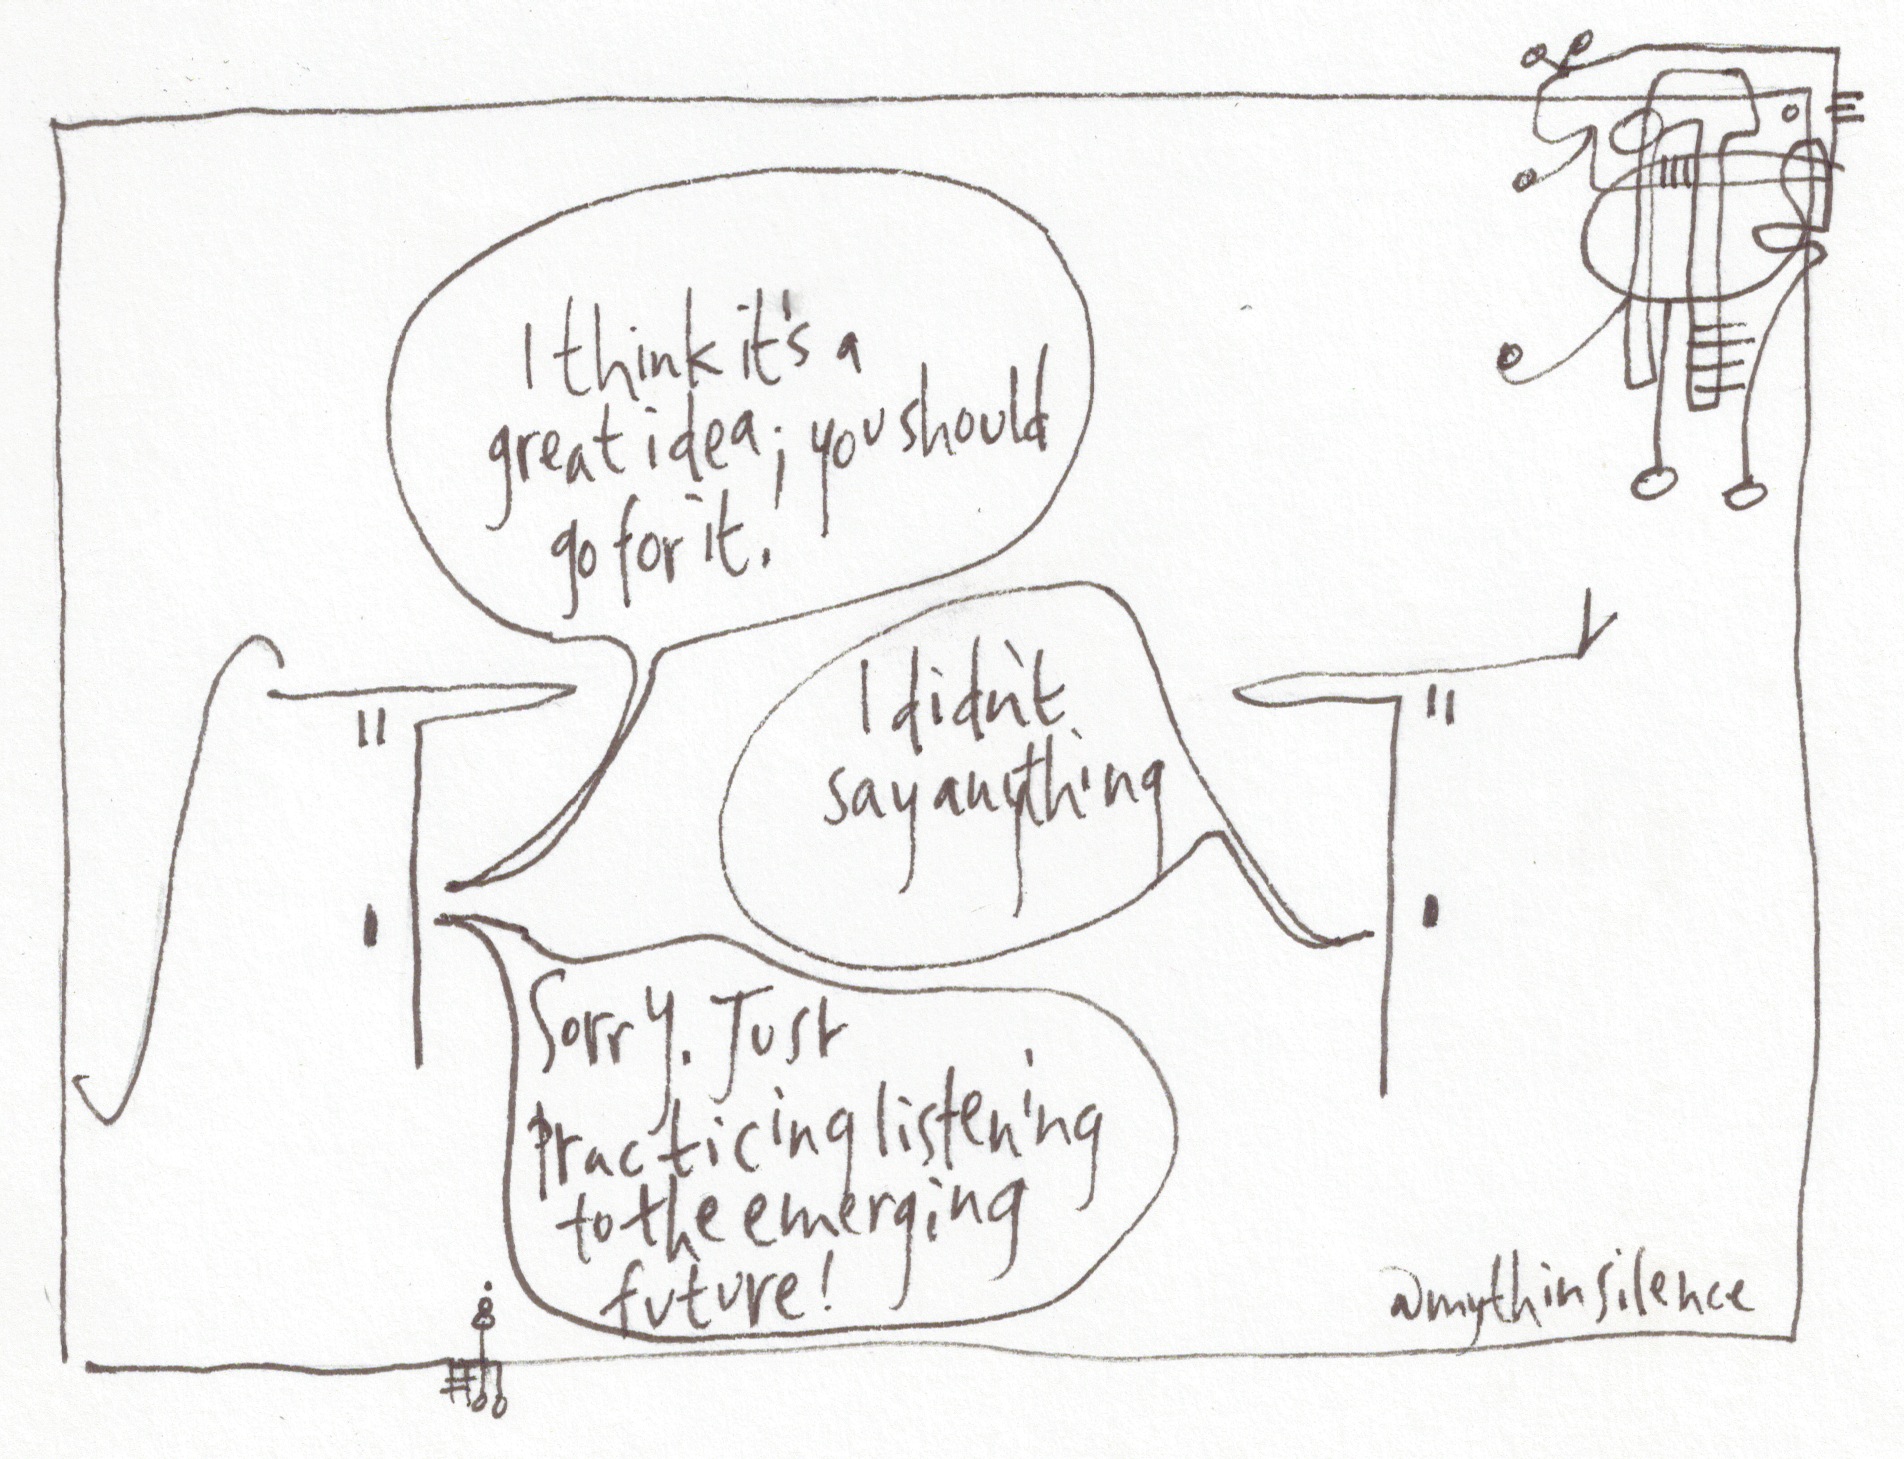 I think it's a
great idea; you should
go for it!
I didn't
say anything
Sorry. Just
practicing listening
to the emerging
future!
@mythinsilence